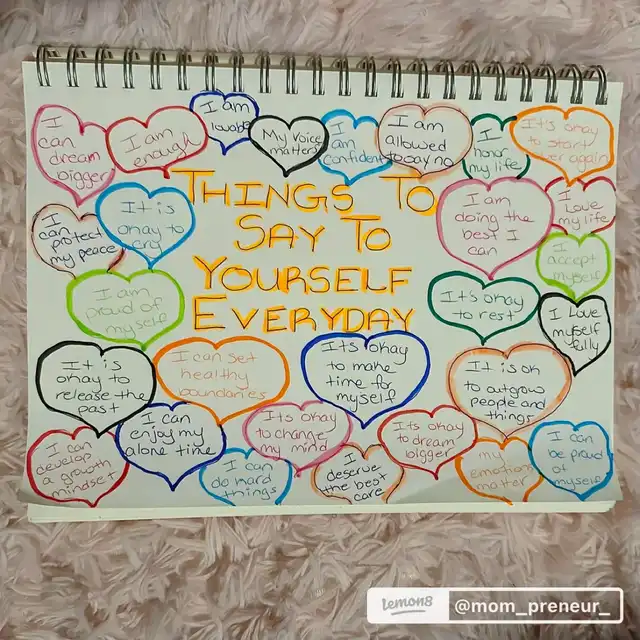 I
can dream
bigger
I am
enough
I am
lovable
My Voice
matters
I
am
confident
I am
allowed
to say no
I
honor
my life
It's okay
to start
over again
THINGS TO
SAY TO
YOURSELF
EVERYDAY
I
can
protect
my peace
It is
okay to
cry
I am
doing the
best I
can
I
Love
my life
I am
proud of
myself
It's okay
to rest
I
accept
myself
I Love
myself
fully
It is
okay to
release the
past
I can set
healthy
boundaries
It's okay
to make
time for
myself
It is ok
to outgrow
people and
things
I can
develop
a growth
mindset
I can
enjoy my
alone time
I can
do hard
things
Its okay
to change
my mind
I
deserve
the best
care
Its okay
to dream
bigger
my
emotions
matter
I can
be proud
of
myself
lemon8
@mom_preneur_